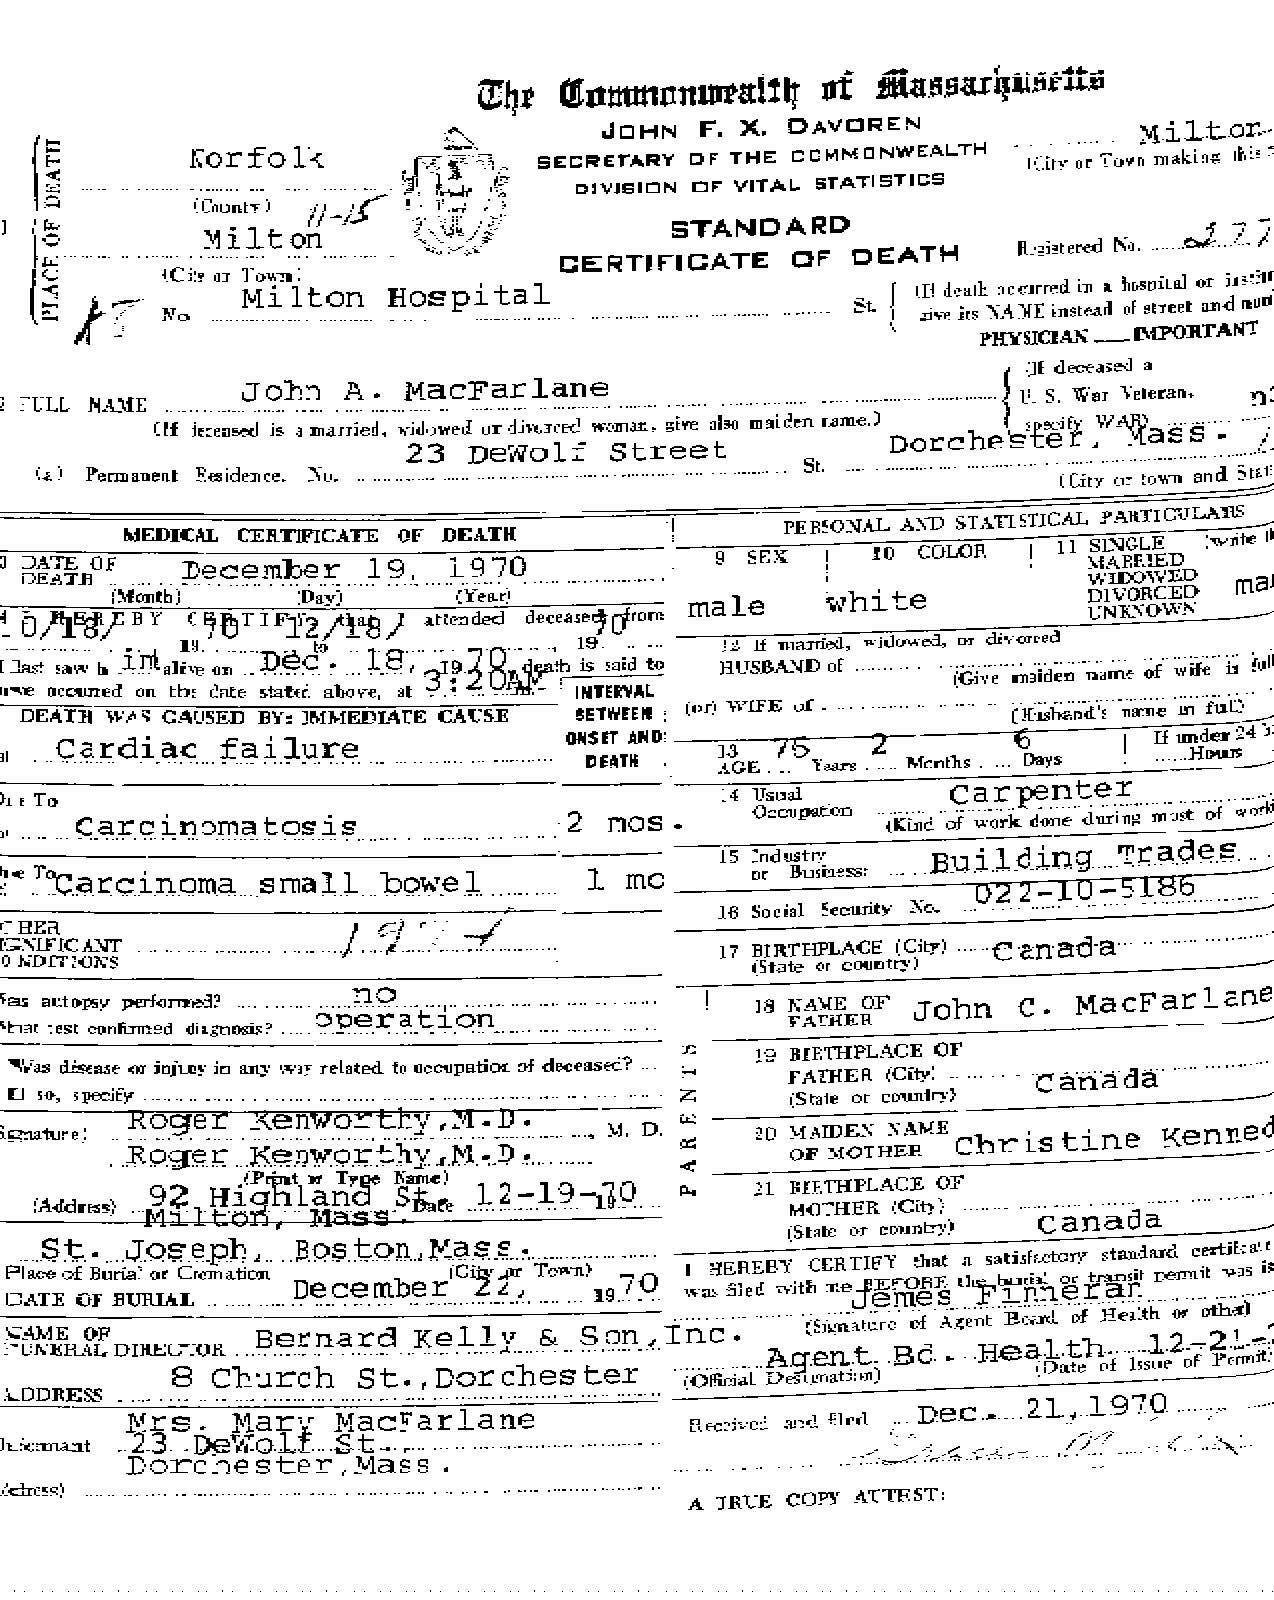 The Commonwealth of Massachusetts
JOHN F. X. DAVOREN
SECRETARY OF THE COMMONWEALTH
DIVISION OF VITAL STATISTICS
STANDARD
CERTIFICATE OF DEATH
Milton
(City or Town making this
Registered No. 277
PLACE OF DEATH
Norfolk
(County)
11-15
Milton
(City or Town)
No Milton Hospital St.
(If death occurred in a hospital or
give its NAME instead of street and
PHYSICIAN — IMPORTANT
2 FULL NAME John A. MacFarlane
(If deceased is a married, widowed or divorced woman, give also maiden name.)
(If deceased a
U. S. War Veteran,
specify WAR)
(a) Permanent Residence. No. 23 DeWolf Street St. Dorchester, Mass.
(City or town and
MEDICAL CERTIFICATE OF DEATH
DATE OF DEATH December 19, 1970
(Month) (Day) (Year)
HEREBY CERTIFY that I attended deceased from
10/18/ 1970 to 12/18/, 1970
I last saw h im alive on Dec. 18, 1970, death is said to
occurred on the date stated above, at 3:20AM
INTERVAL BETWEEN ONSET AND DEATH
DEATH WAS CAUSED BY: IMMEDIATE CAUSE
Cardiac failure
Due To
Carcinomatosis 2 mos.
To Carcinoma small bowel 1 mo
CONDITIONS
autopsy performed? no
test confirmed diagnosis? operation
Was disease or injury in any way related to occupation of deceased?
If so, specify
Signature) Roger Kenworthy,M.D. , M. D.
Roger Kenworthy,M.D.
(Print or Type Name)
(Address) 92 Highland St. Date 12-19-1970
Milton, Mass.
St. Joseph, Boston,Mass.
Place of Burial or Cremation (City or Town)
DATE OF BURIAL December 22, 1970
NAME OF
FUNERAL DIRECTOR Bernard Kelly & Son,Inc.
ADDRESS 8 Church St.,Dorchester
Informant Mrs. Mary MacFarlane
23 DeWolf St.,
Dorchester,Mass.
PERSONAL AND STATISTICAL PARTICULARS
9 SEX male
10 COLOR white
11 SINGLE
MARRIED
WIDOWED
DIVORCED
UNKNOWN
12 If married, widowed, or divorced
HUSBAND of
(Give maiden name of wife in full
(or) WIFE of
(Husband's name in full)
13 AGE 75 Years 2 Months 6 Days
If under 24
Hours
14 Usual Occupation Carpenter
(Kind of work done during most of
15 Industry or Business: Building Trades
16 Social Security No. 022-10-5186
17 BIRTHPLACE (City) Canada
(State or country)
PARENTS
18 NAME OF FATHER John C. MacFarlane
19 BIRTHPLACE OF
FATHER (City)
(State or country) Canada
20 MAIDEN NAME
OF MOTHER Christine
21 BIRTHPLACE OF
MOTHER (City)
(State or country) Canada
I HEREBY CERTIFY that a satisfactory standard
was filed with me BEFORE the burial or transit permit was
James Finneran
(Signature of Agent Board of Health or other)
Agent Bd. Health 12-21-
(Official Designation) (Date of Issue of Permit)
Received and filed Dec. 21,1970
A TRUE COPY ATTEST: